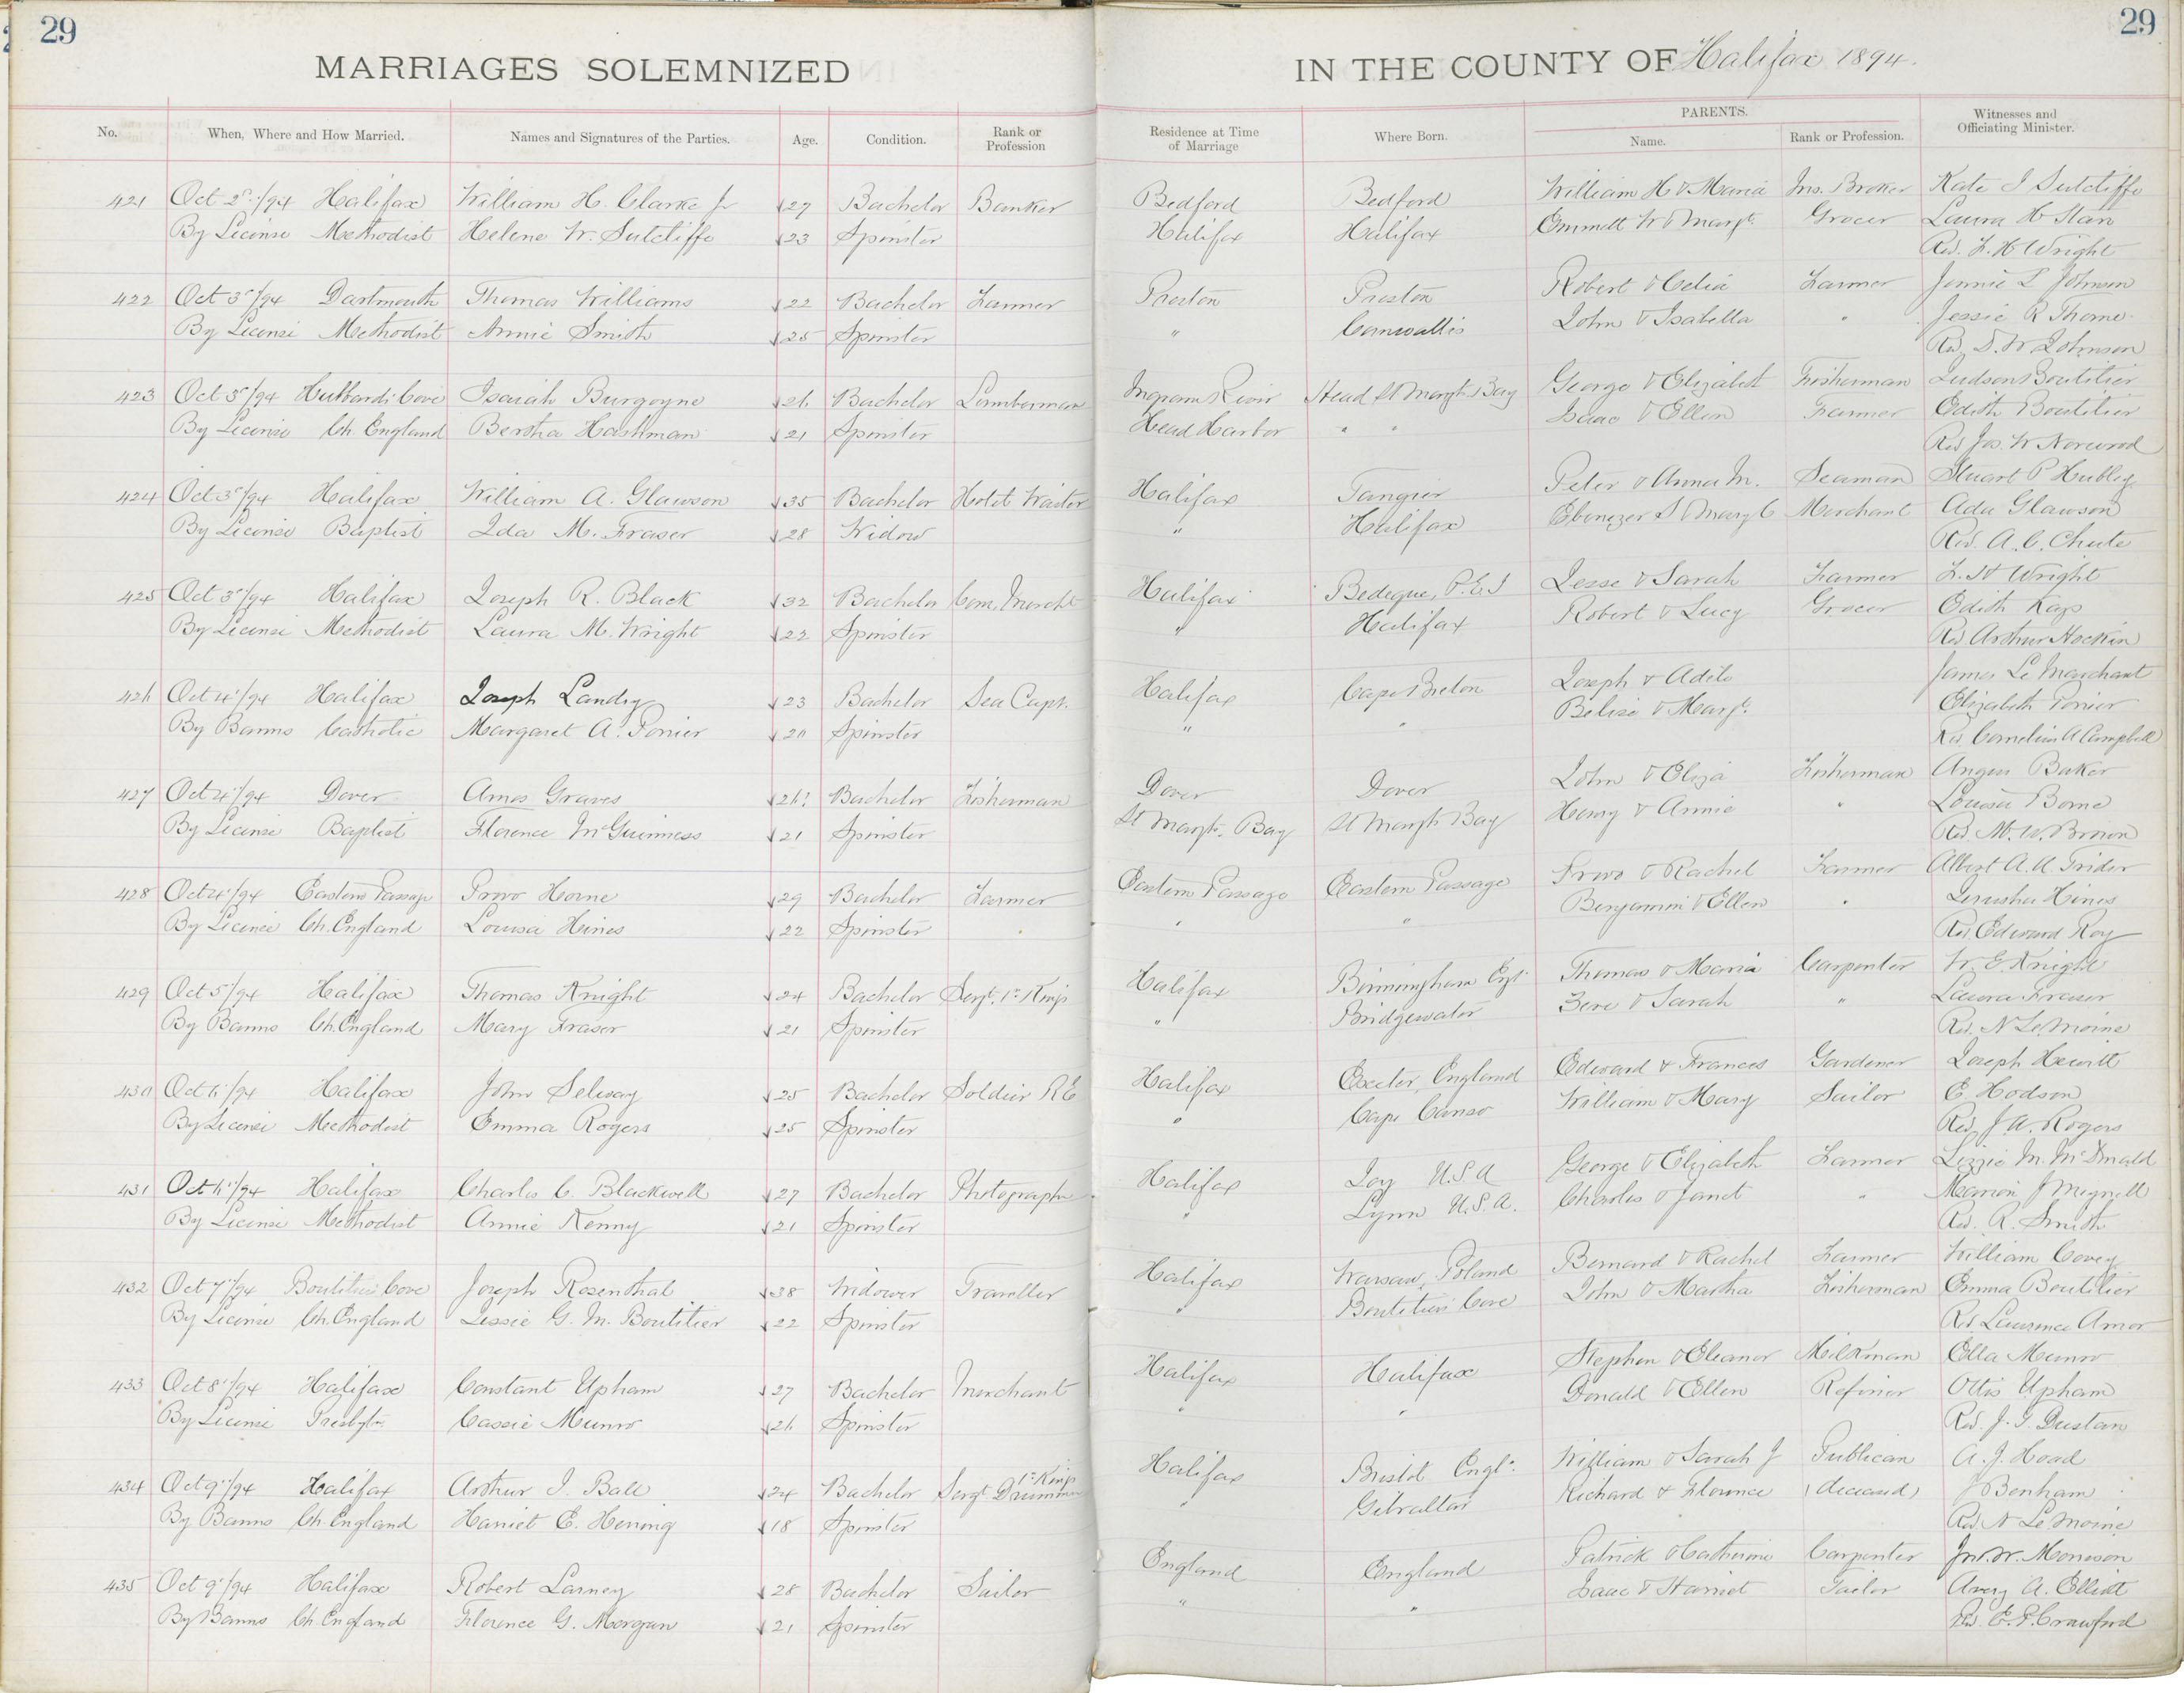 29
29
MARRIAGES SOLEMNIZED IN THE COUNTY OF Halifax 1894.
No. When, Where and How Married. Names and Signatures of the Parties. Age. Condition. Rank or Profession Residence at Time of Marriage Where Born. PARENTS. Name. Rank or Profession. Witnesses and Officiating Minister.
421 Oct 2"/94 Halifax William H. Clarke Jr 27 Bachelor Banker Bedford Bedford William H & Maria Ins. Broker Kate I Sutcliffe
By License Methodist Helene W. Sutcliffe 23 Spinster Halifax Halifax Emmett W & Margt. Grocer Laura H Starr
Rev. F. H Wright
422 Oct 3"/94 Dartmouth Thomas Williams 22 Bachelor Farmer Preston Preston Robert & Celia Farmer Jennie L Johnson
By License Methodist Annie Smith 25 Spinster " Cornwallis John & Isabella " Jessie R Thorne
Rev. D. W Johnson
423 Oct 3"/94 Hubbards Cove Isaiah Burgoyne 26 Bachelor Lumberman Ingram River Head St Margts Bay George & Elizabeth Fisherman Judson Boutilier
By License Ch. England Bertha Hashman 21 Spinster Head Harbor " " Isaac & Ellen Farmer Edith Boutilier
Rev Jos. W Norwood
424 Oct 3"/94 Halifax William A. Glawson 35 Bachelor Hotel Waiter Halifax Tangier Peter & Anna M. Seaman Stuart P Hubley
By License Baptist Ida M. Fraser 28 Widow " Halifax Ebenezer S & Mary C Merchant Ada Glawson
Rev. A. C. Chute
425 Oct 3"/94 Halifax Joseph R. Black 32 Bachelor Com. Mercht Halifax Bedeque, P.E.I Jesse & Sarah Farmer F. H Wright
By License Methodist Laura M. Wright 22 Spinster " Halifax Robert & Lucy Grocer Edith Kaye
Rev Arthur Hockin
426 Oct 4"/94 Halifax Joseph Landry 23 Bachelor Sea Capt. Halifax Cape Breton Joseph & Adile James Le Marchant
By Banns Catholic Margaret A. Poirier 20 Spinster " " Belise & Margt. Elizabeth Poirier
Rev. Cornelius A Campbell
427 Oct 4"/94 Dover Amos Graves 26 Bachelor Fisherman Dover Dover John & Eliza Fisherman Angus Baker
By License Baptist Florence McGuinness 21 Spinster St Margts. Bay St Margts Bay Henry & Annie " Louisa Borne
Rev. M. W. Brown
428 Oct 4"/94 Eastern Passage Provo Horne 29 Bachelor Farmer Eastern Passage Eastern Passage Provo & Rachel Farmer Albert A. A. Trider
By License Ch. England Louisa Hines 22 Spinster " " Benjamin & Ellen " Jerusha Hines
Rev. Edward Roy
429 Oct 5"/94 Halifax Thomas Knight 24 Bachelor Sergt. 1st Kings Halifax Birmingham Engl. Thomas & Maria Carpenter W. E. Knight
By Banns Ch. England Mary Fraser 21 Spinster " Bridgewater & Sarah " Laura Fraser
Rev. N LeMoine
430 Oct 6"/94 Halifax John Selway 25 Bachelor Soldier RE Halifax Exeter, England Edward & Frances Gardener Joseph Hewitt
By License Methodist Emma Rogers 25 Spinster " Cape Canso William & Mary Sailor E. Hodson
Rev. J. A. Rogers
431 Oct 6"/94 Halifax Charles C. Blackwell 27 Bachelor Photographer Halifax U.S.A George & Elizabeth Farmer Lizzie M. McDonald
By License Methodist Annie Kenny 21 Spinster " Lynn U.S.A. Charles & Janet " Marion J Meynell
Rev. R. Smith
432 Oct 7"/94 Boutiliers Cove Joseph Rosenthal 38 Widower Traveller Halifax Warsaw, Poland Bernard & Rachel Farmer William Covey
By License Ch. England Lessie G. M. Boutilier 22 Spinster " Boutiliers Cove John & Martha Fisherman Emma Boutilier
Rev Laurence Amor
433 Oct 8"/94 Halifax Constant Upham 27 Bachelor Merchant Halifax Halifax Stephen & Eleanor Milkman Ella Munro
By License Presbytn Cassie Munro 26 Spinster " " Donald & Ellen Refiner Ottis Upham
Rev. J. F. Dustan
434 Oct 9"/94 Halifax Arthur I. Ball 24 Bachelor Sergt Drummer 1st Kings Halifax Bristol Engl. William & Sarah J Publican A. J. Hoad
By Banns Ch. England Harriet E. Hening 18 Spinster " Gibraltar Richard & Florence (deceased) J Benham
Rev. N LeMoine
435 Oct 9"/94 Halifax Robert Larney 28 Bachelor Sailor England England Patrick & Catherine Carpenter Jno. W. Morrison
By Banns Ch England Florence G. Morgan 21 Spinster " " Isaac & Harriet Tailor Avery A. Elliott
Rev. E. P. Crawford